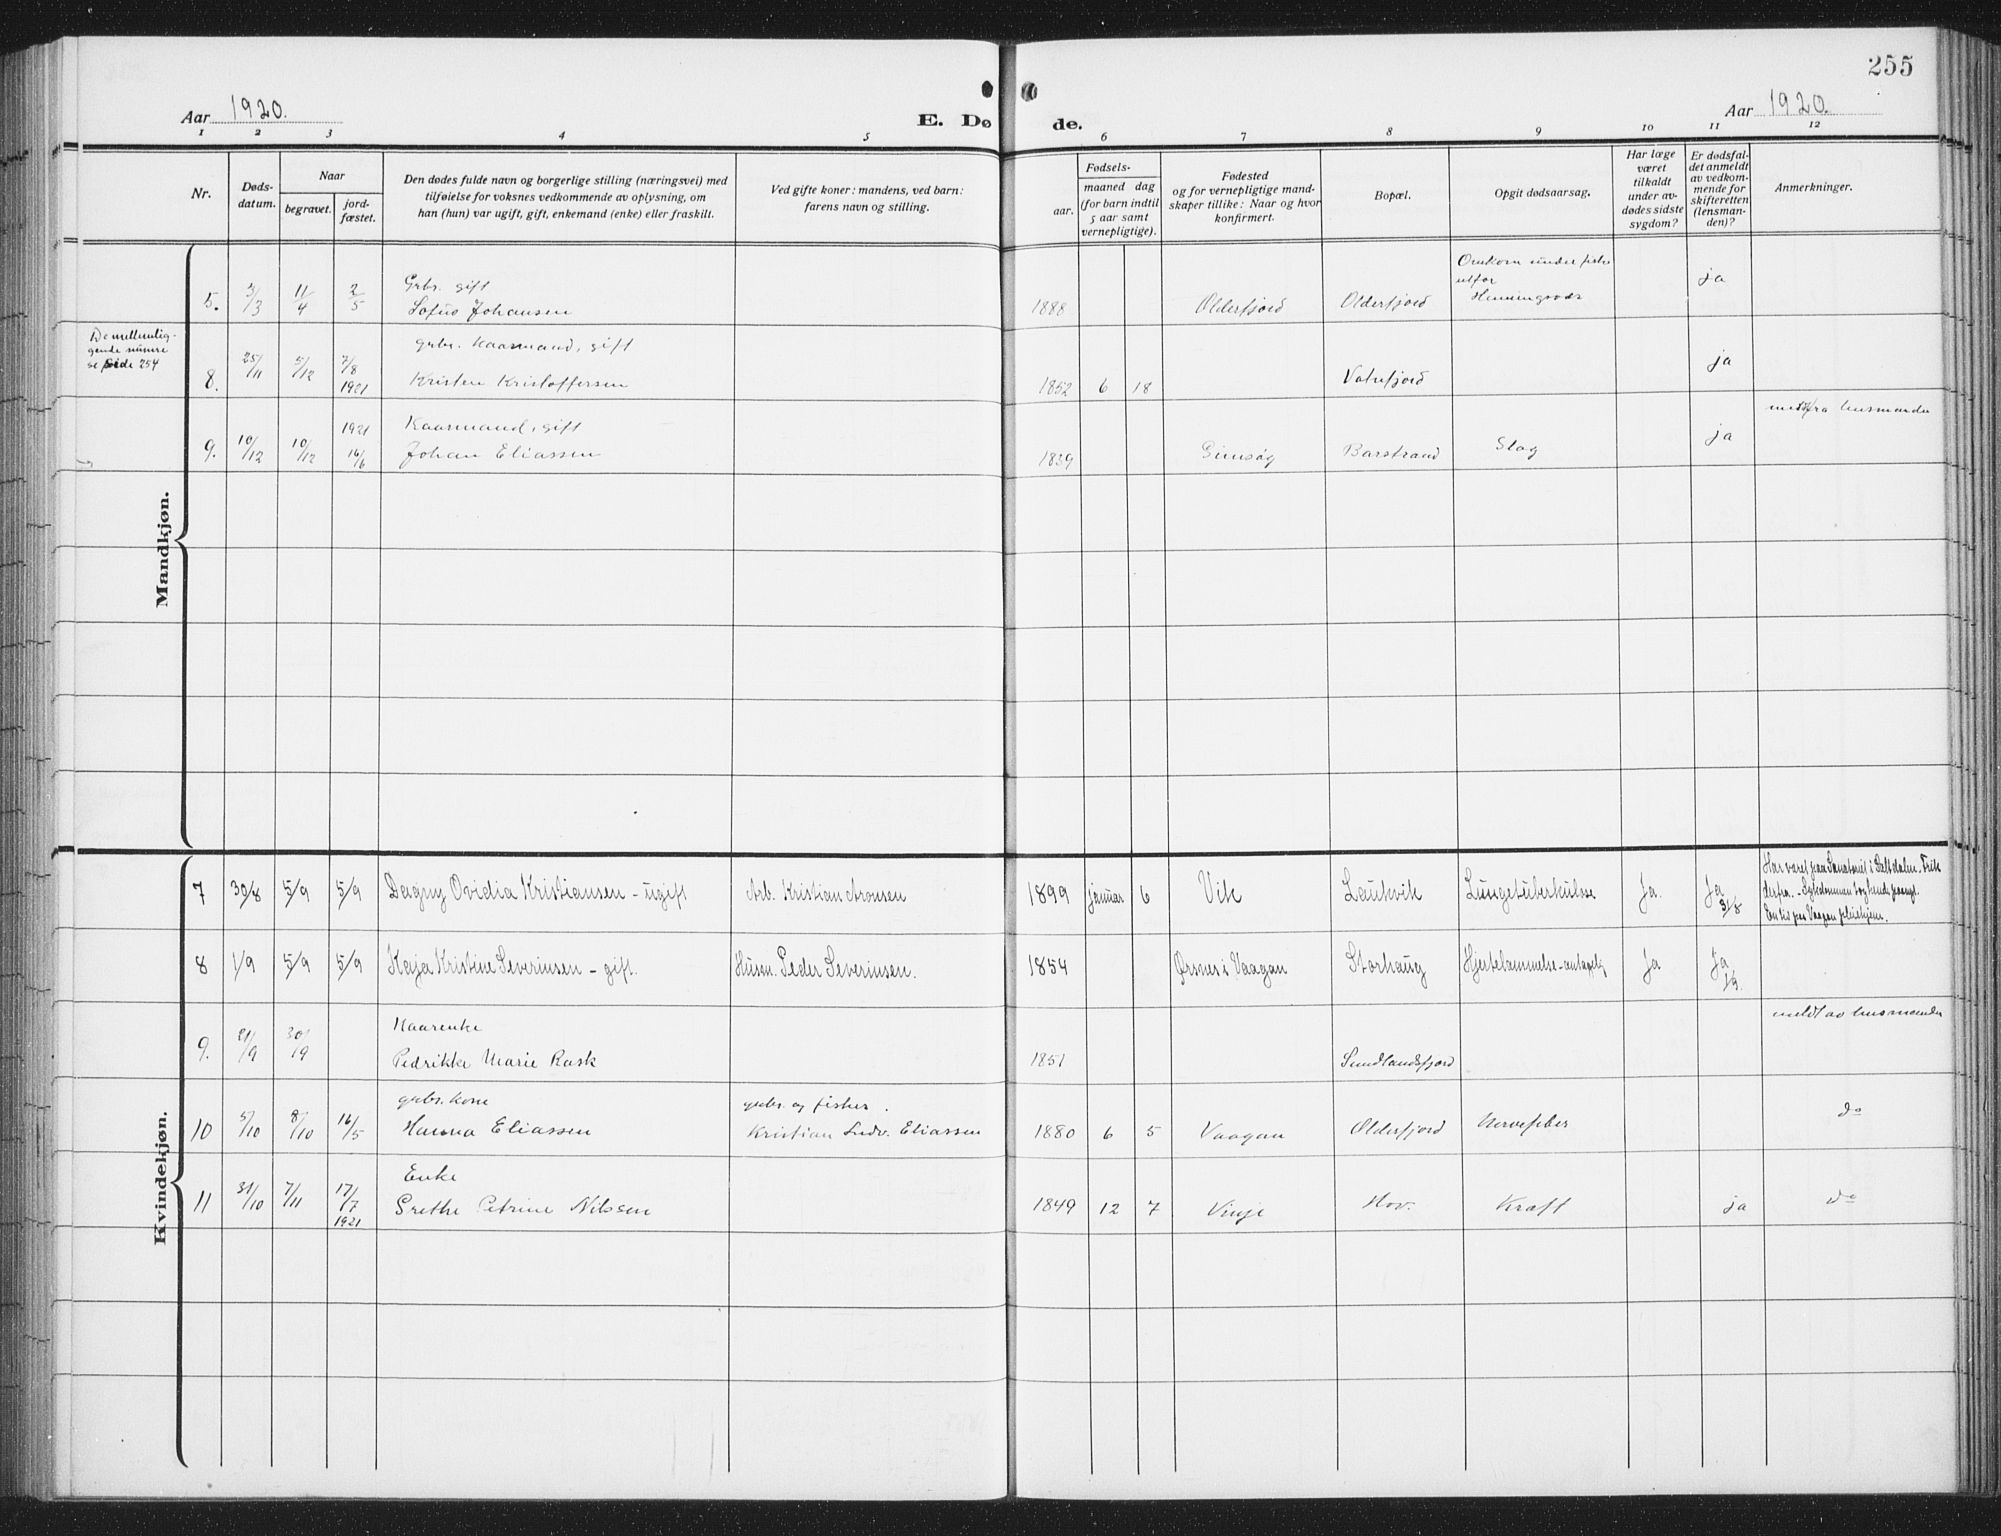 255
Aar 1920.
E. Dø
de.
Aar 1920.
1 2 3 4 5 6 7 8 9 10 11 12
Nr.
Døds-
datum.
Naar
begravet.
jord-
fæstet.
Den dødes fulde navn og borgerlige stilling (næringsvei) med
tilføielse for voksnes vedkommende av oplysning, om
han (hun) var ugift, gift, enkemand (enke) eller fraskilt.
Ved gifte koner: mandens, ved barn:
farens navn og stilling.
Fødsels-
aar.
maaned dag
(for barn indtil
5 aar samt
vernepligtige).
Fødested
og for vernepligtige mand-
skaper tillike: Naar og hvor
konfirmert.
Bopæl.
Opgit dødsaarsag.
Har læge
været
tilkaldt
under av-
dødes sidste
sygdom?
Er dødsfal-
det anmeldt
av vedkom-
mende for
skifteretten
(lensman-
den)?
Anmerkninger.
Mandkjøn.
5. 3/3 11/4 2/5 Grbr. gift
Lofus Johansen
1888 Olderfjord Olderfjord
Omkom under fiske
utfor
Henningsvær
ja
De mellemlig-
gende numre
se side 254
8. 25/11 5/12 7/8
1921
grbr. Kaarmand, gift
Kristen Kristoffersen
1852 6 18 Vatnfjord ja
9. 10/12 10/12 1921
16/6
Kaarmand, gift
Johan Eliassen
1839 Gimsøy Barstrand Slag ja
husmanden
Kvindekjøn.
7 30/8 5/9 5/9 Dagny Ovidia Kristiansen - ugift Arb. Kristian Aronsen 1899 januar 6 Vik Laukvik Lungetuberkulose Ja. Ja
31/8
Har været paa Sanatoriet i Saltdalen.
Vaagan pleiehjem.
8 1/9 5/9 5/9 Kaja Kristine Severinsen - gift. Husm. Peder Severinsen. 1854 Ørsnes i Vaagan Storhaug Hjertelammelse - antagelig Ja Ja
1/9
9. 21/9 30/9 Kaarenke
Pedrikke Marie Rask
1851 Sundlandsfjord
meldt av husmanden
10 5/10 8/10 16/5 grbr. kone
Hanna Eliassen
grbr. og fisker.
Kristian Ludv. Eliassen
1880 6 5 Vaagan Olderfjord Nervefeber do
11 31/10 7/11 17/7
1921
Enke
Grethe Petrine Nilssen
1849 12 7 Vinje Hov. Kræft ja do